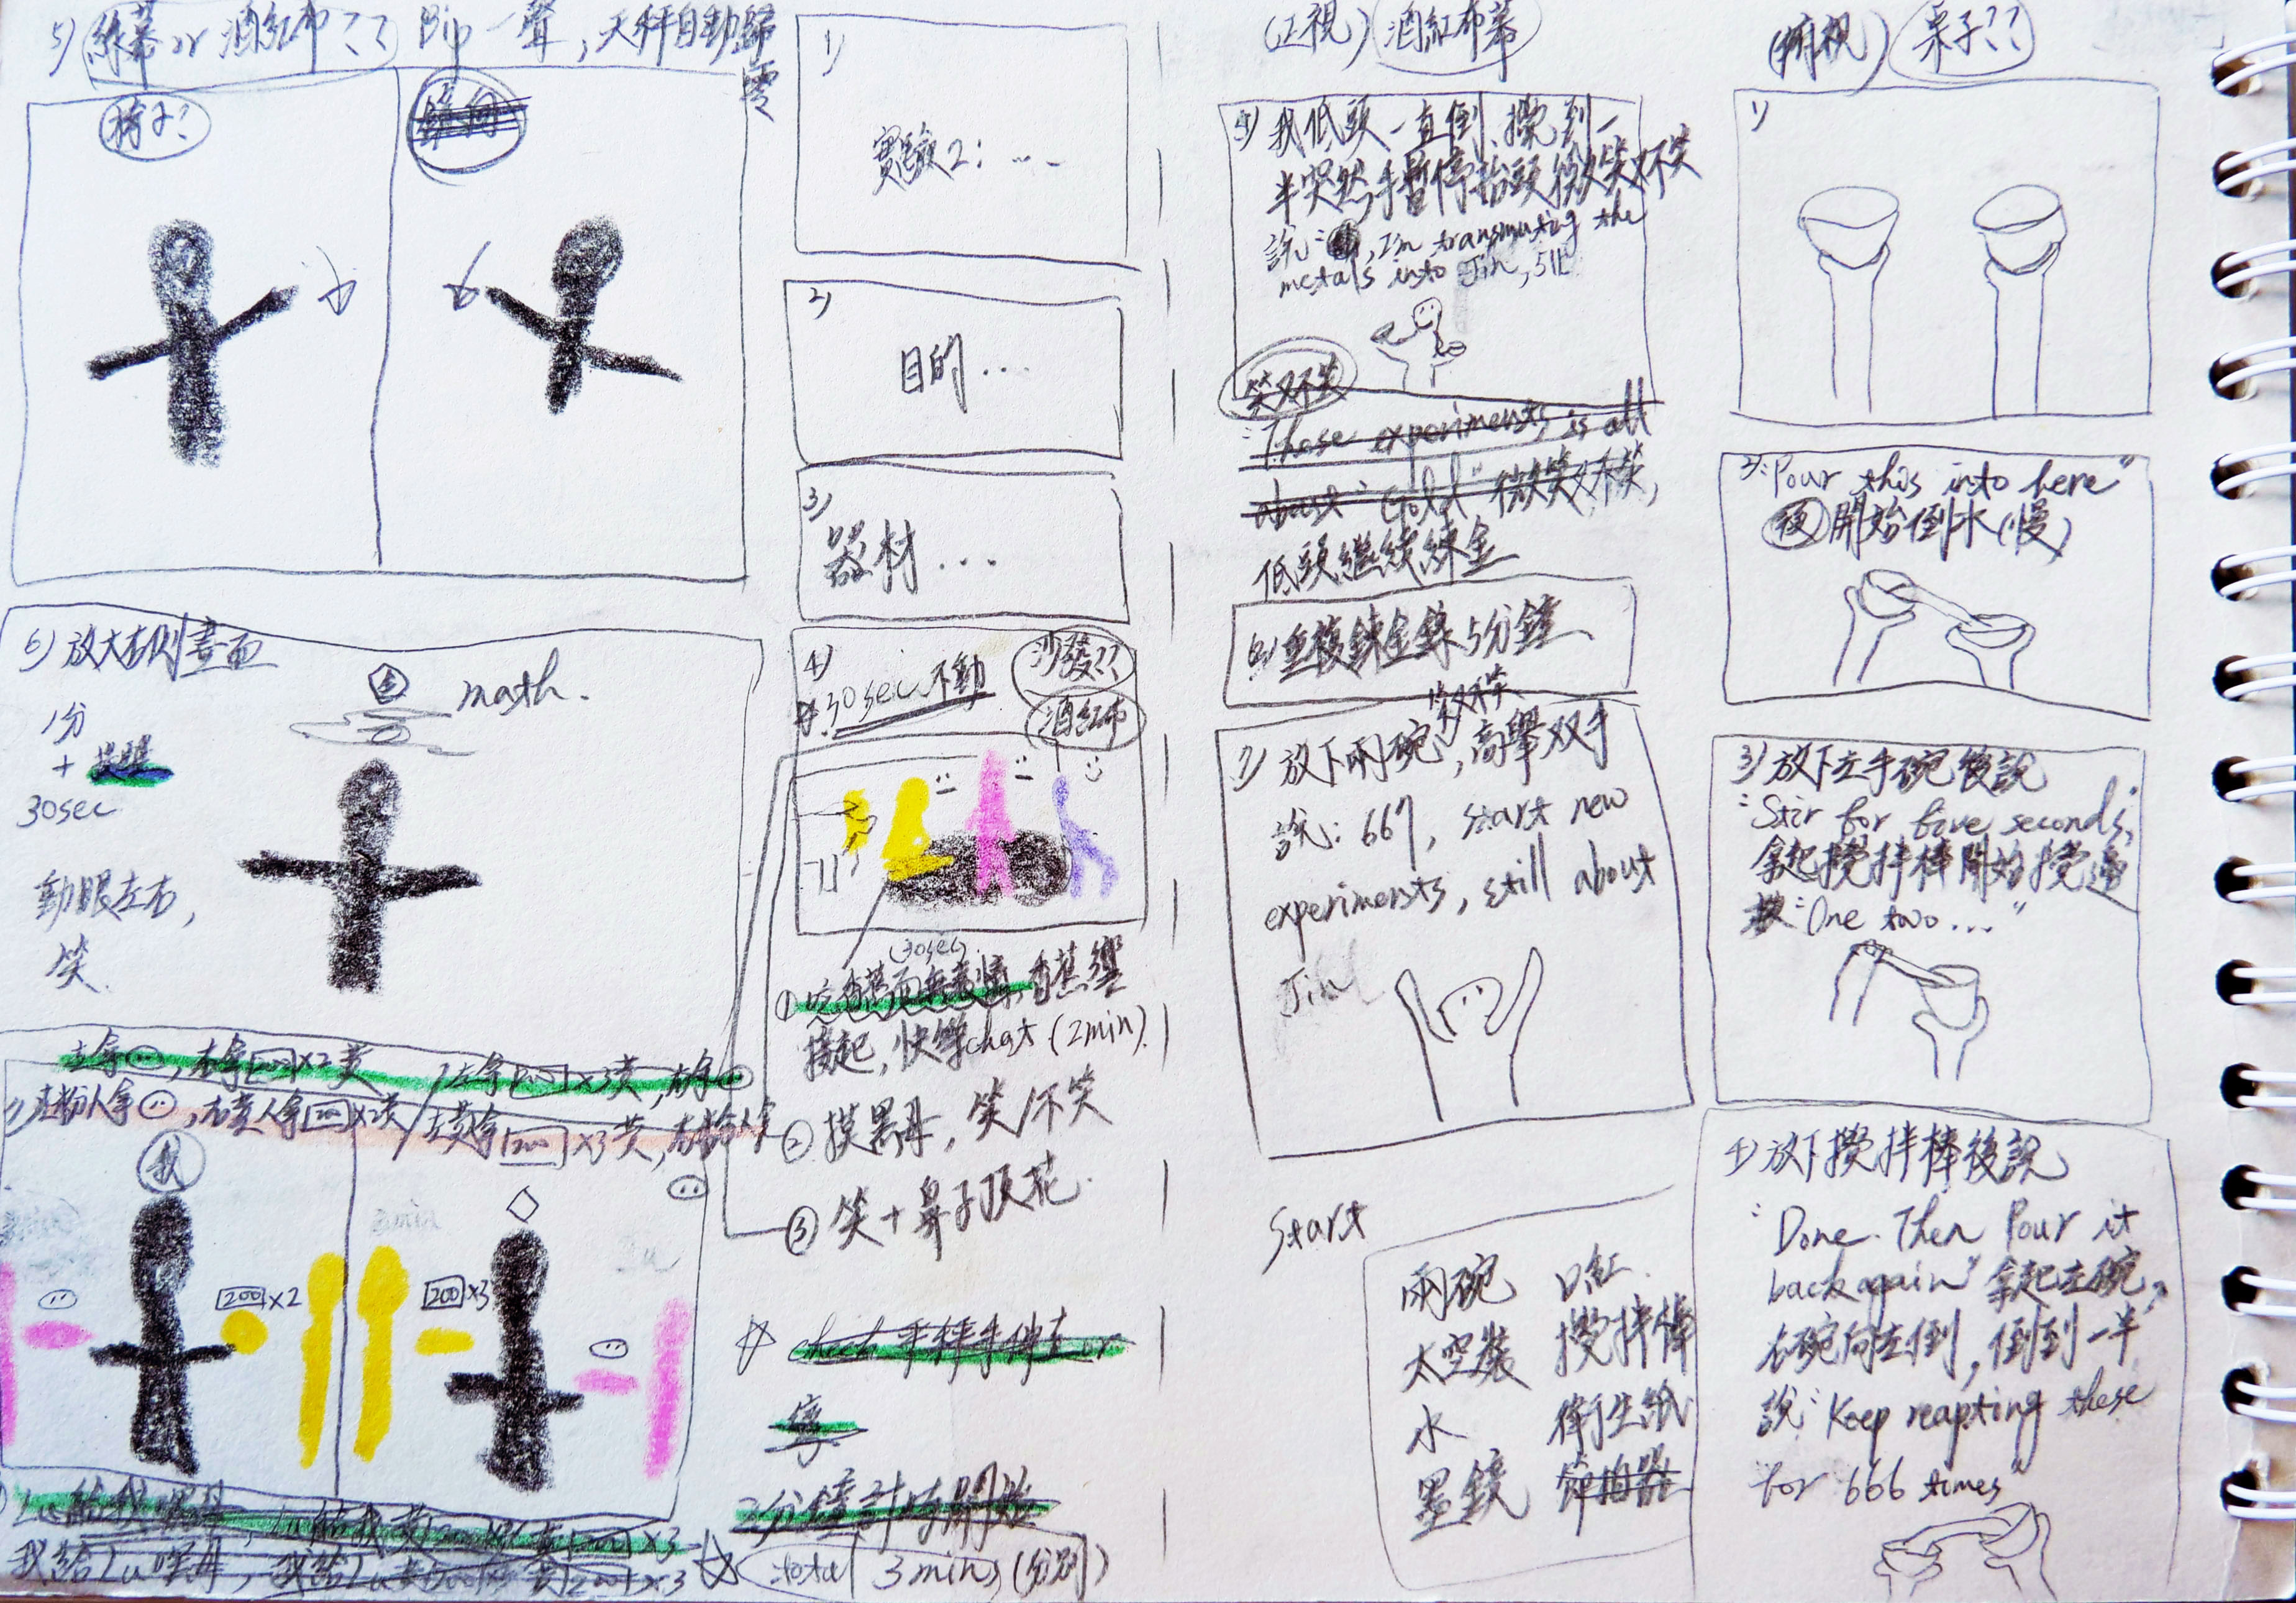 5) 綠幕 or 酒紅布?? Bip 一聲, 天秤自動歸零
椅子?
6) 放大右側畫面
math.
1分
+
30sec
動眼左右,
笑.
左拿, 右拿 200 x2 黃 / 左拿 200 x3 黃, 右拿
7) 左粉人拿, 右黃人拿 200 x2 黃 / 左黃拿 200 x3 黃, 右粉人拿
我
200 x2
200 x3
1)
實驗2: ...
2)
目的...
3)
器材...
4)
30sec 不動
沙發??
酒紅布
(30sec)
①
香蕉響
接起, 快樂chat (2min).
② 摸黑母, 笑/不笑
③ 笑 + 鼻子頂花.
check 天秤手伸直 or
3分鐘計時開始
total 3 mins (分別)
(正視) 酒紅布幕
5) 我低頭一直倒、攪到一
半突然手暫停抬頭微笑又不笑
說: I'm transmuting the
metals into Jin, 511
笑又不笑
"These experiments is all
about "Gold" 微笑又不笑,
低頭繼續練金
6) 重複鍊金錄5分鐘、
笑又不笑
7) 放下兩碗, 高舉双手
說: 667, start new
experiments, still about
Jin
Start
兩碗 口紅.
太空裝 攪拌棒
水 衛生紙
墨鏡 節拍器
(俯視) 桌子??
1)
2) "Pour this into here"
後 開始倒水(慢)
3) 放下左手碗後說
"Stir for five seconds,"
拿起攪拌棒開始攪邊
數 "One two..."
4) 放下攪拌棒後說
"Done. Then Pour it
back again" 拿起左碗,
右碗向左倒, 倒到一半
說 "Keep reapting these
for 666 times"